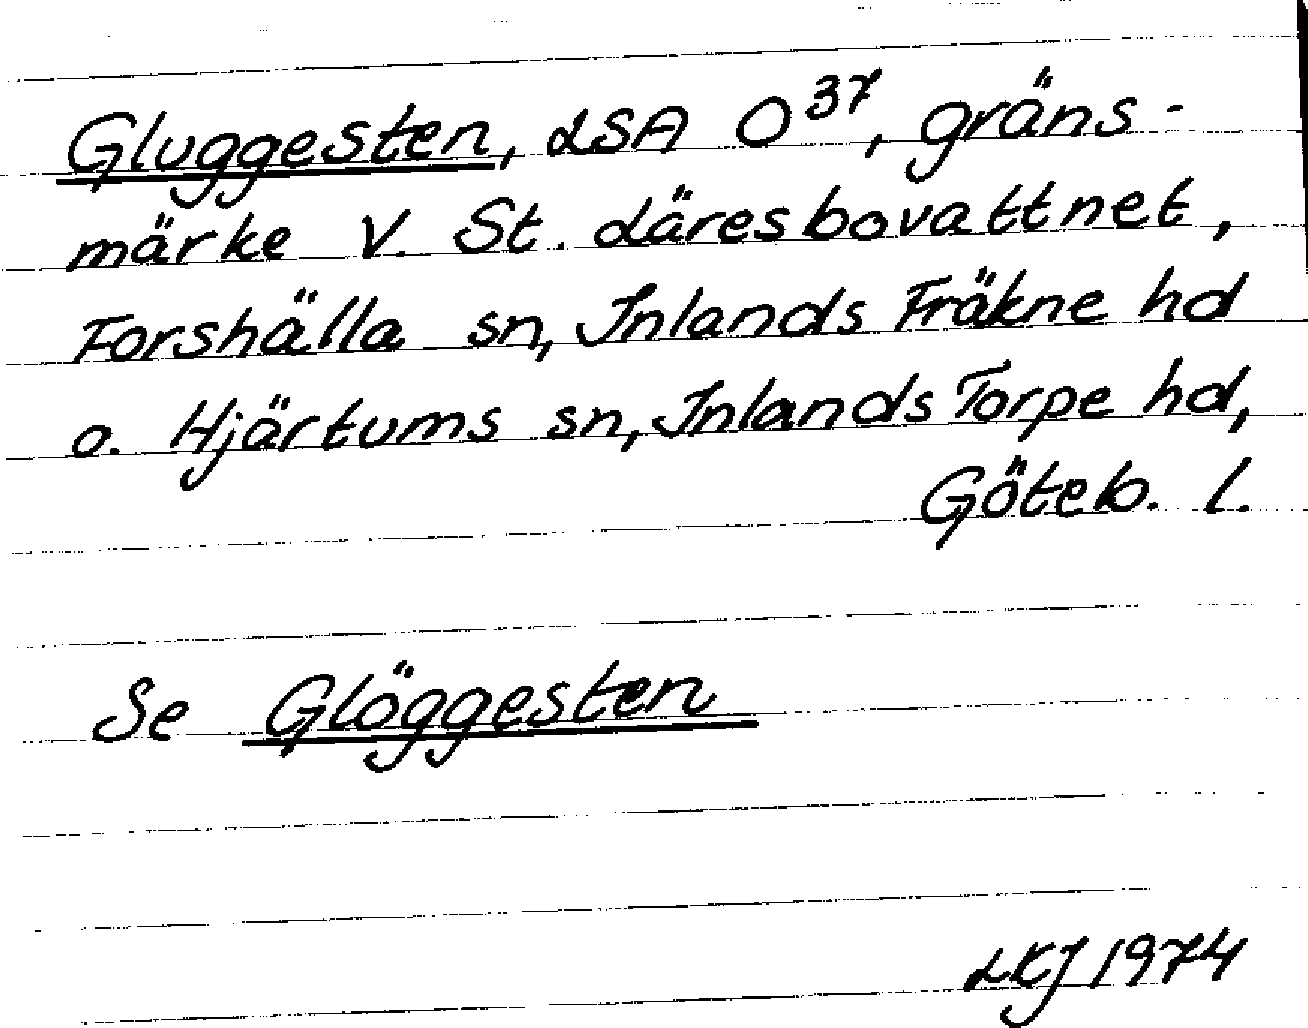 Gluggesten, LSA O³⁷, gräns-
märke V. St. Läresbovattnet,
Forshälla sn, Inlands Fräkne hd
o. Hjärtums sn, Inlands Torpe hd,
Göteb. l.
Se Glöggesten
LKJ 1974